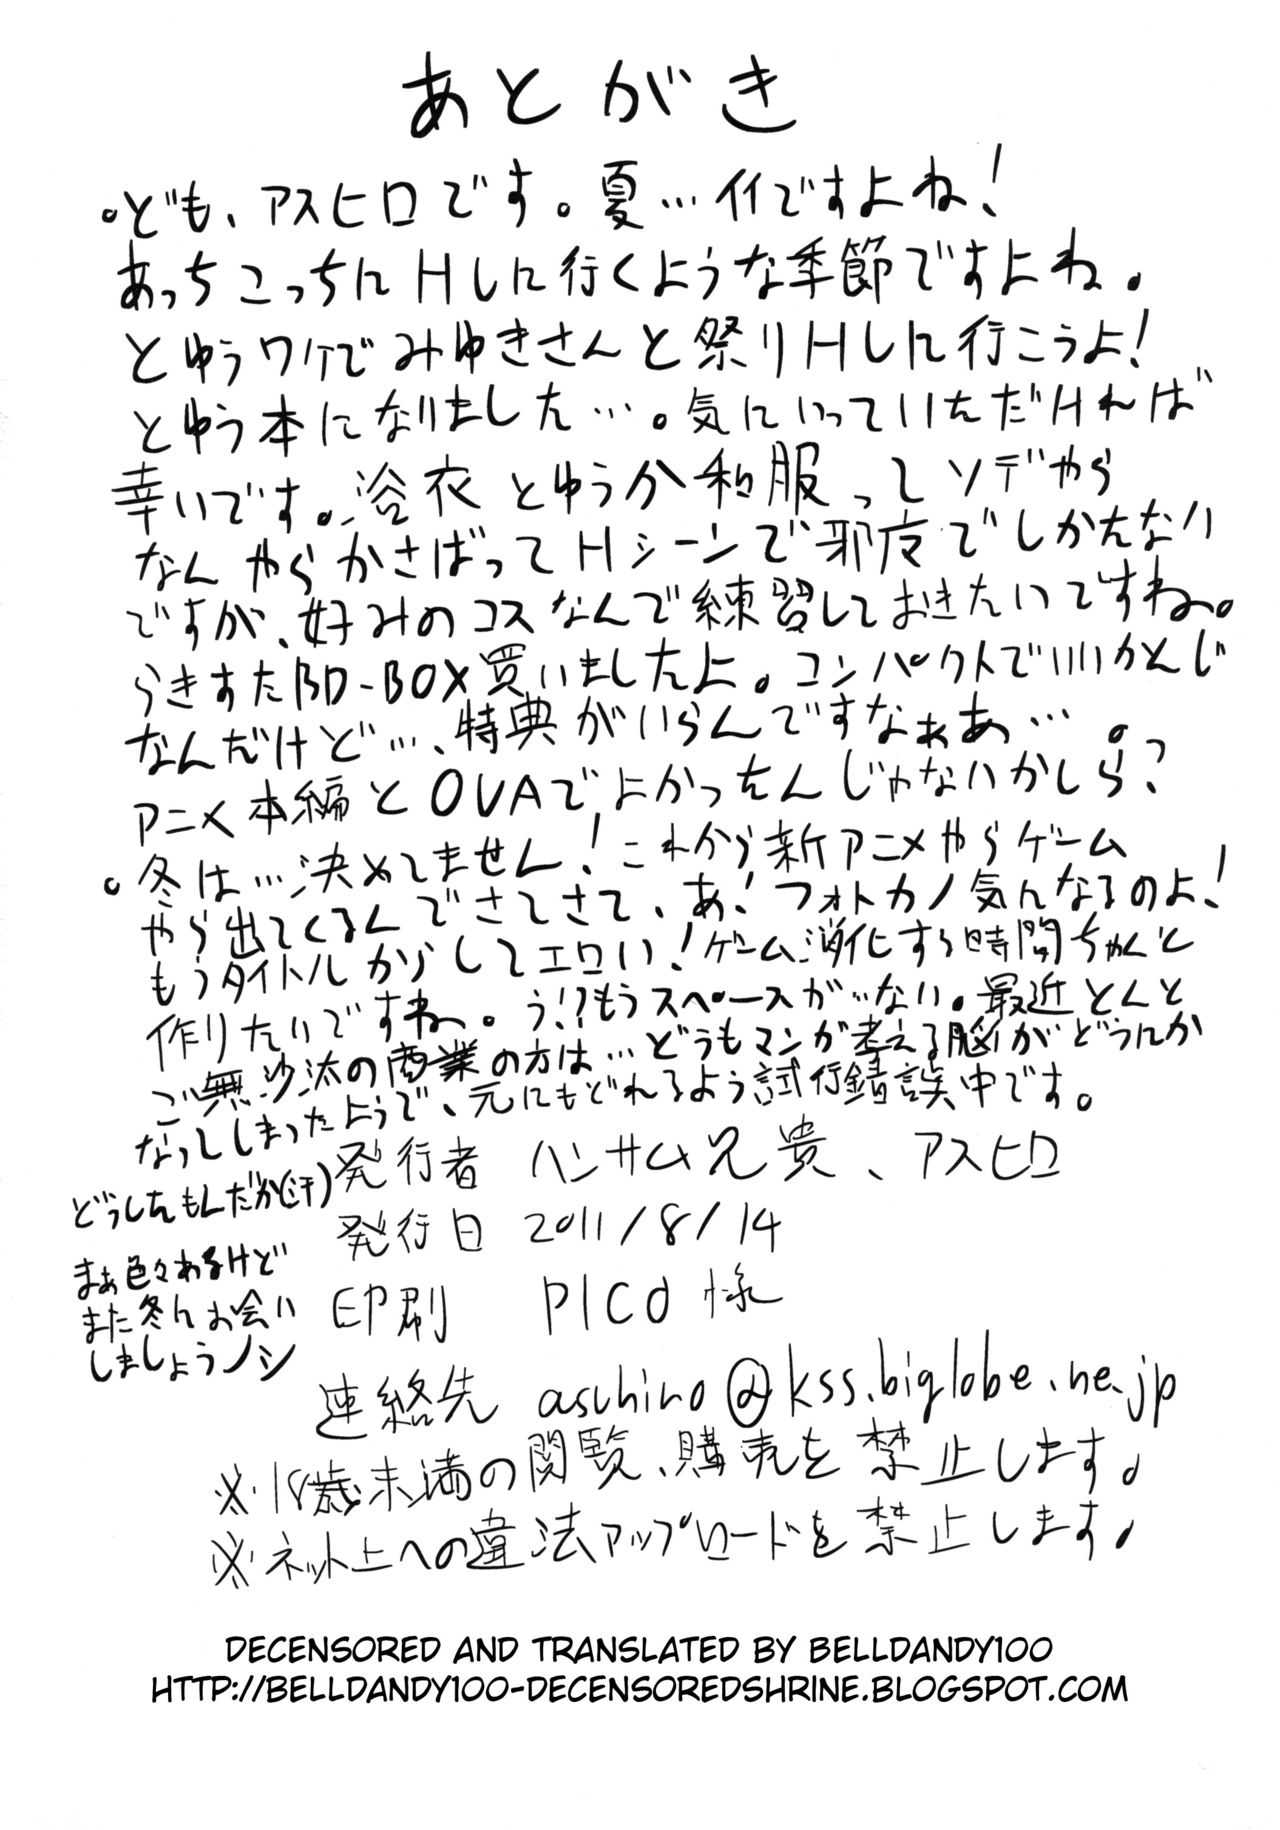 あとがき
。ども、アスヒロです。夏…イイですよね!
あっちこっちにHしに行くような季節ですよね。
とゆうワケでみゆきさんと祭りHしに行こうよ!
とゆう本になりました…。気にいっていただければ
幸いです。浴衣とゆうか和服ってソデやら
なんやらかさばってHシーンで邪魔でしかたない
ですが、好みのコスなんで練習しておきたいですね。
らきすたBD-BOX買いましたよ。コンパクトでいいかんじ
なんだけど…、特典がいらんですなぁあ…。
アニメ本編とOVAでよかったんじゃないかしら?
。冬は…決めてません!これから新アニメやらゲーム
やら出てくるんでさてさて、あ!フォトカノ気になるのよ!
もうタイトルからしてエロい!ゲーム消化する時間ちゃんと
作りたいですねー。う!?もうスペースがない。最近とんと
ご無沙汰の商業の方は…どうもマンガ考える脳がどうにか
なってしまったようで、元にもどれるよう試行錯誤中です。
どうしたもんだか(汗)
まぁ色々あるけど
また冬にお会い
しましょうノシ
発行者 ハンサム兄貴、アスヒロ
発行日 2011/8/14
印刷 PICO様
連絡先 asuhiro@kss.biglobe.ne.jp
※18歳未満の閲覧、購売を禁止します。
※ネット上への違法アップロードを禁止します。
DECENSORED AND TRANSLATED BY BELLDANDY100
HTTP://BELLDANDY100-DECENSOREDSHRINE.BLOGSPOT.COM